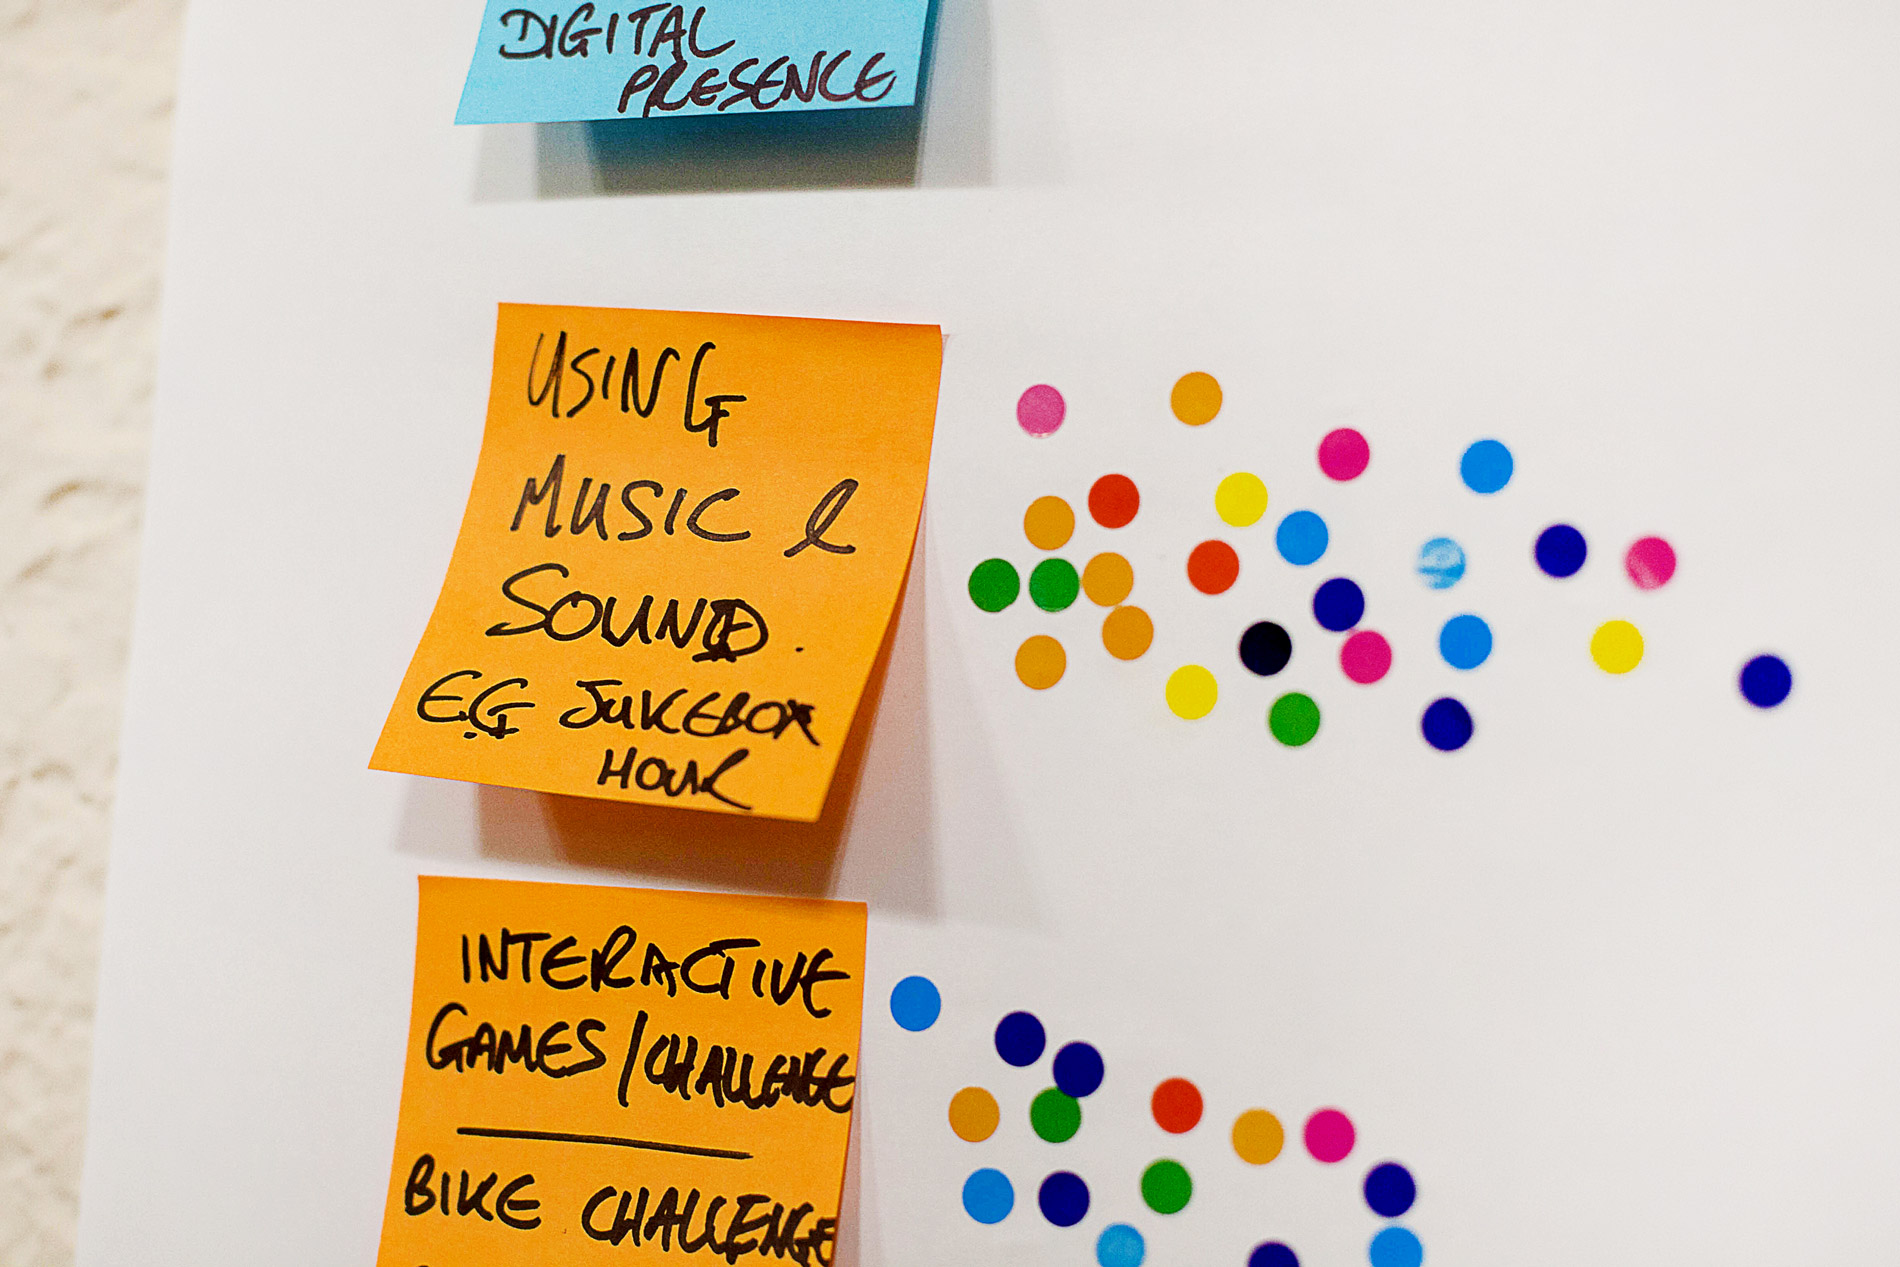 DIGITAL
PRESENCE
USING
MUSIC &
SOUND.
E.G JUKEBOX
HOUR
INTERACTIVE
GAMES/CHALLENGE
BIKE CHALLENGE